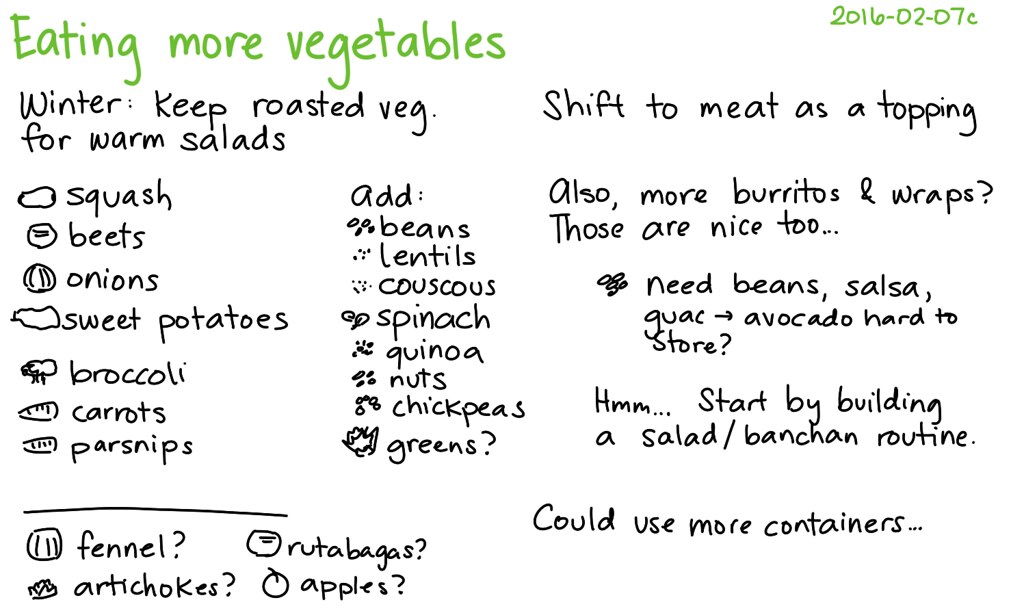 Eating more vegetables
2016-02-07c
Winter: Keep roasted veg.
for warm salads
squash
beets
onions
sweet potatoes
broccoli
carrots
parsnips
add:
beans
lentils
couscous
spinach
quinoa
nuts
chickpeas
greens?
fennel?
rutabagas?
artichokes?
apples?
Shift to meat as a topping
Also, more burritos & wraps?
Those are nice too...
need beans, salsa,
guac → avocado hard to
store?
Hmm... Start by building
a salad/banchan routine.
Could use more containers...